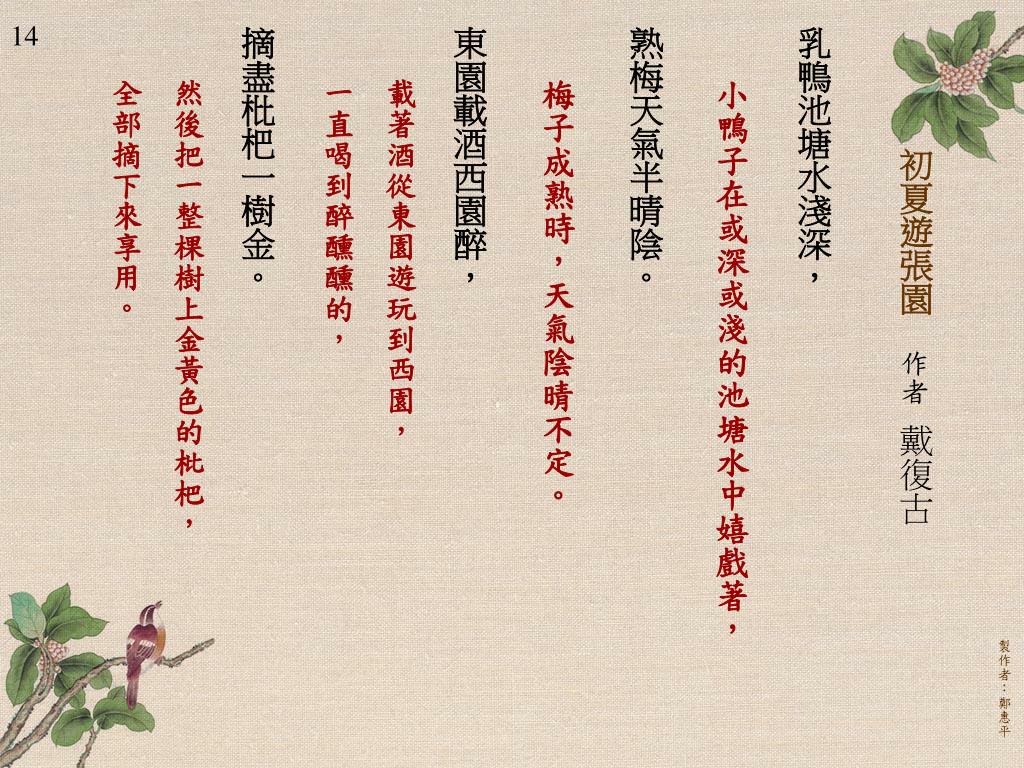 初夏遊張園 作者 戴復古
乳鴨池塘水淺深，
小鴨子在或深或淺的池塘水中嬉戲著，
熟梅天氣半晴陰。
梅子成熟時，天氣陰晴不定。
東園載酒西園醉，
載著酒從東園遊玩到西園，
一直喝到醉醺醺的，
摘盡枇杷一樹金。
然後把一整棵樹上金黃色的枇杷，
全部摘下來享用。
14
製作者：鄭惠平